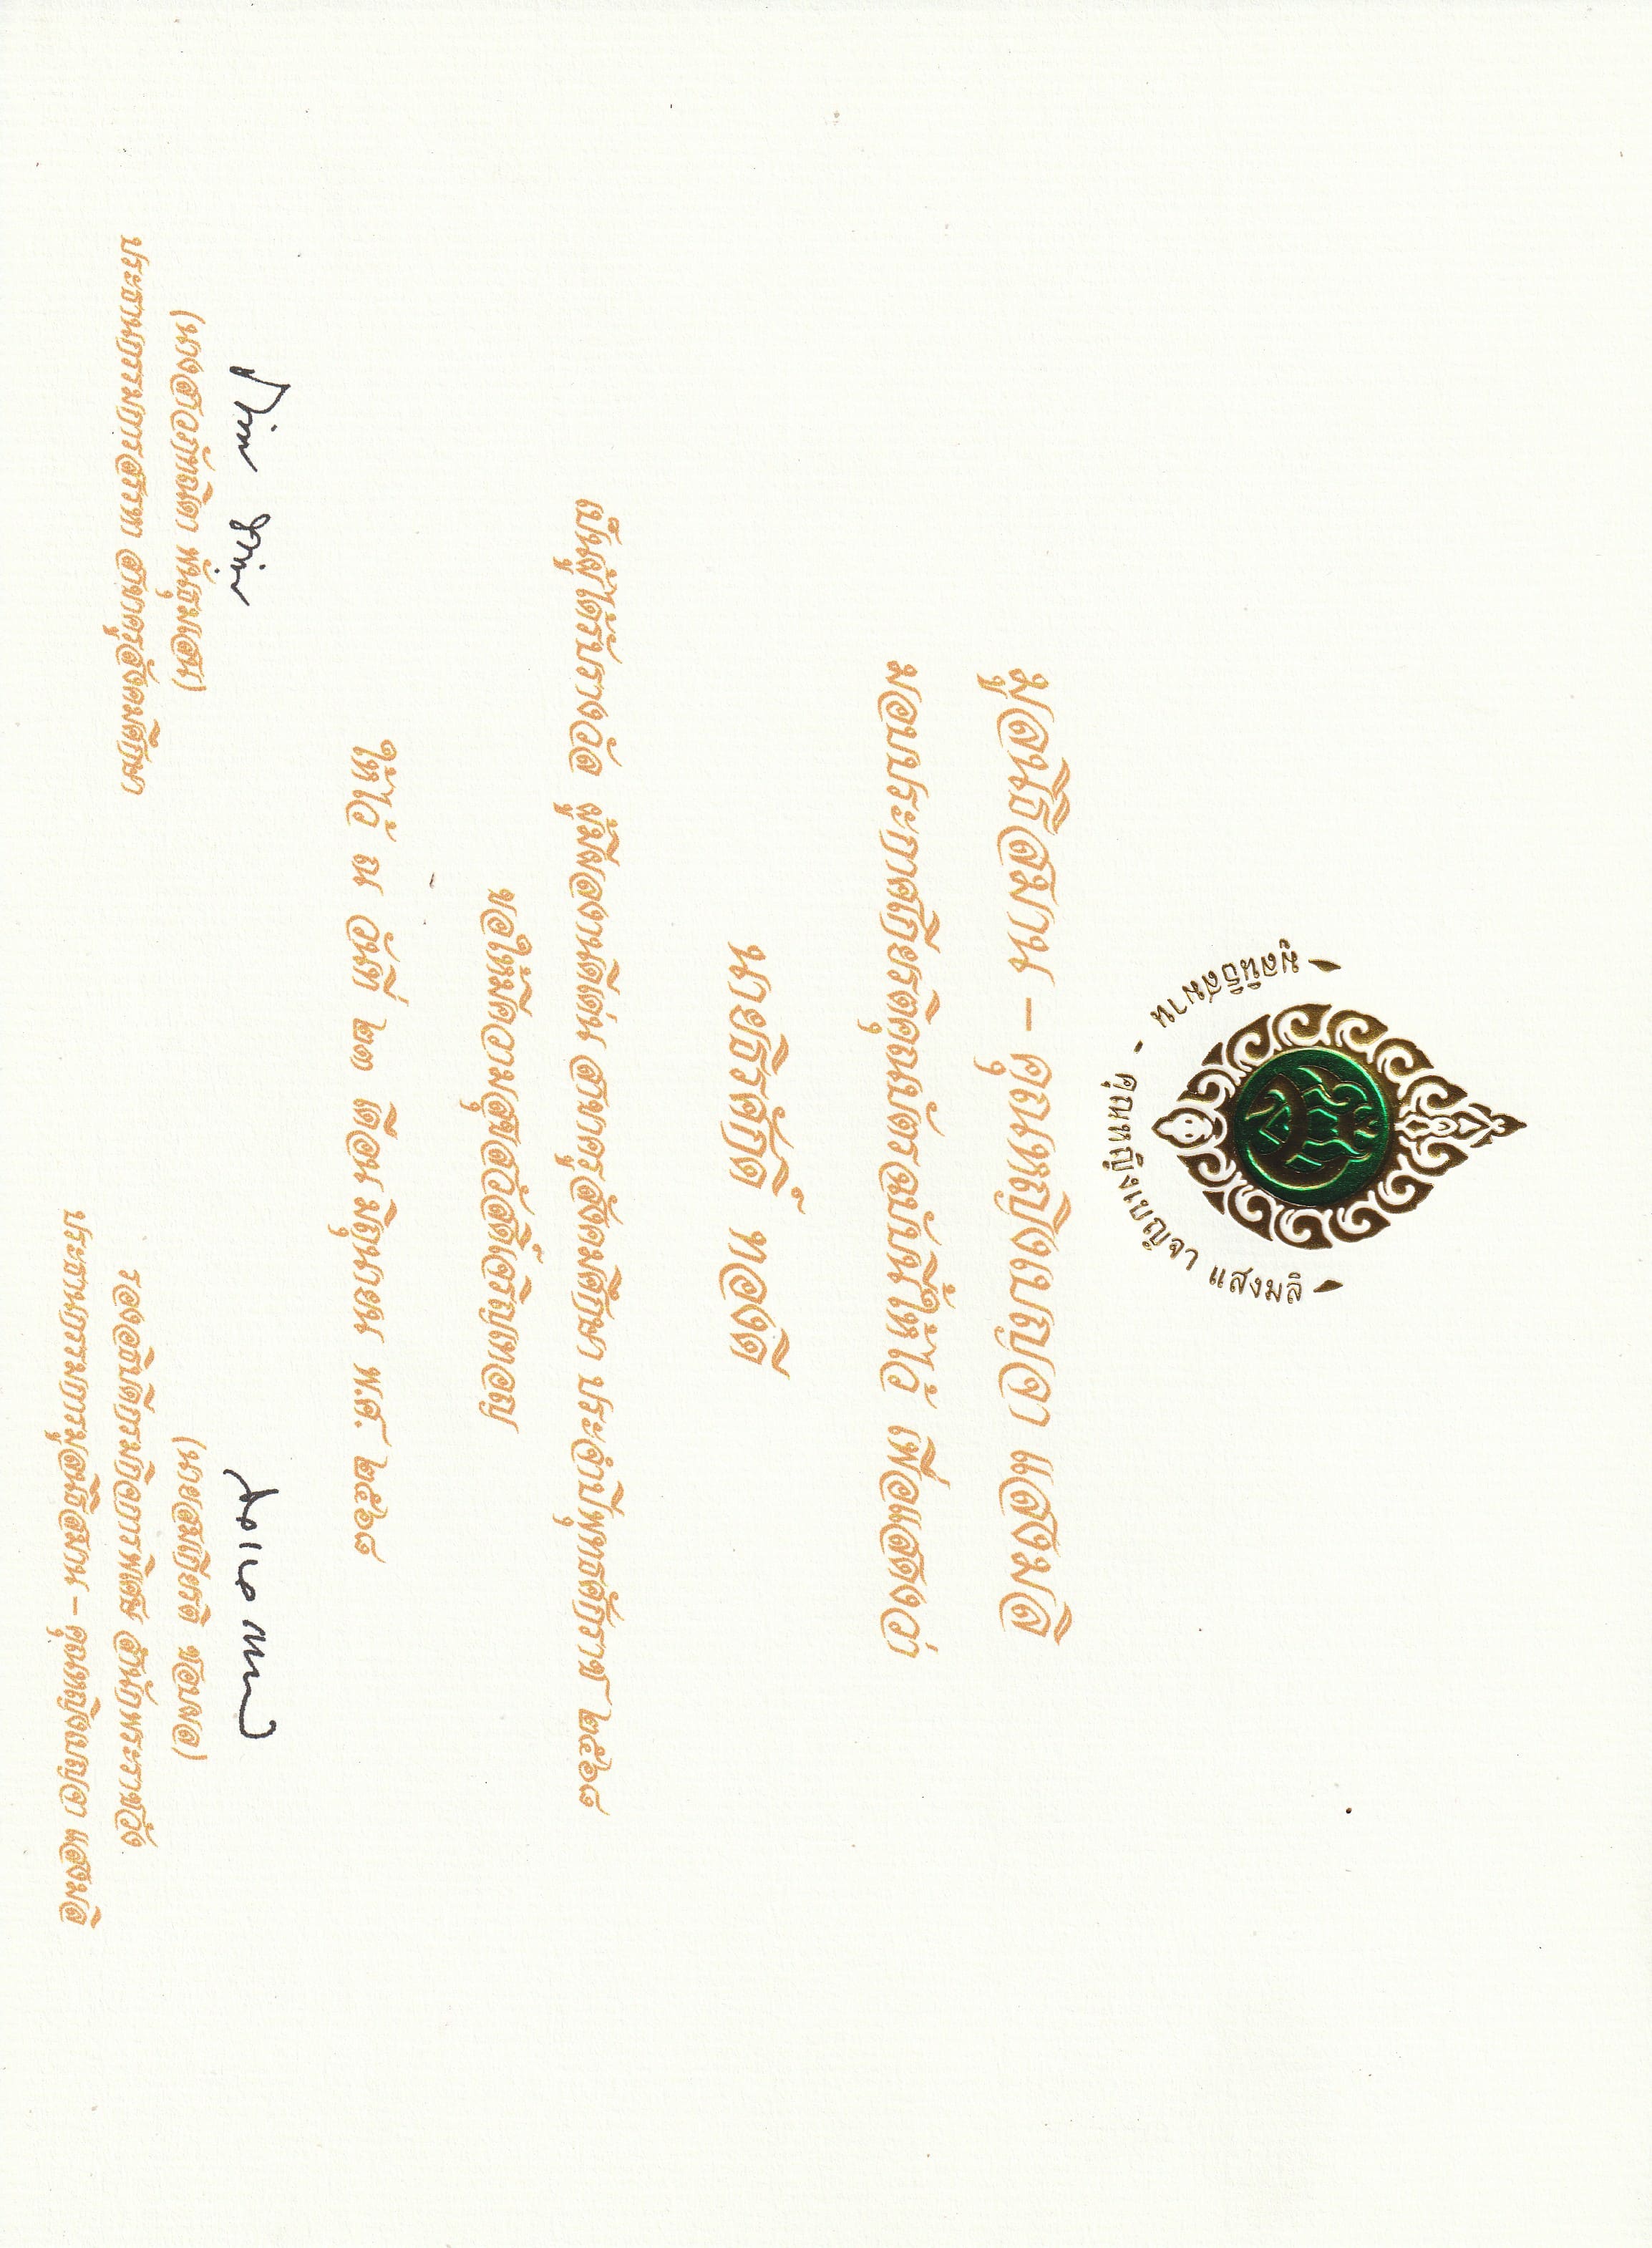 มูลนิธิสมาน - คุณหญิงเบญจา แสงมลิ
มูลนิธิสมาน – คุณหญิงเบญจา แสงมลิ
มอบประกาศเกียรติคุณบัตรฉบับนี้ให้ไว้ เพื่อแสดงว่า
นายธีรศักดิ์ ทองดี
เป็นผู้ได้รับรางวัล ผู้มีผลงานดีเด่น สาขาครูสังคมศึกษา ประจำปีพุทธศักราช ๒๕๖๘
ขอให้มีความสุขสวัสดิ์เจริญเทอญ
ให้ไว้ ณ วันที่ ๒๓ เดือน มิถุนายน พ.ศ. ๒๕๖๘
(นางสาวภัทณิดา พันธุมเสน)
ประธานกรรมการสรรหา สาขาครูสังคมศึกษา
(นายสมเกียรติ ชอบผล)
รองอธิบดีกรมกิจการพิเศษ สำนักพระราชวัง
ประธานกรรมการมูลนิธิสมาน – คุณหญิงเบญจา แสงมลิ